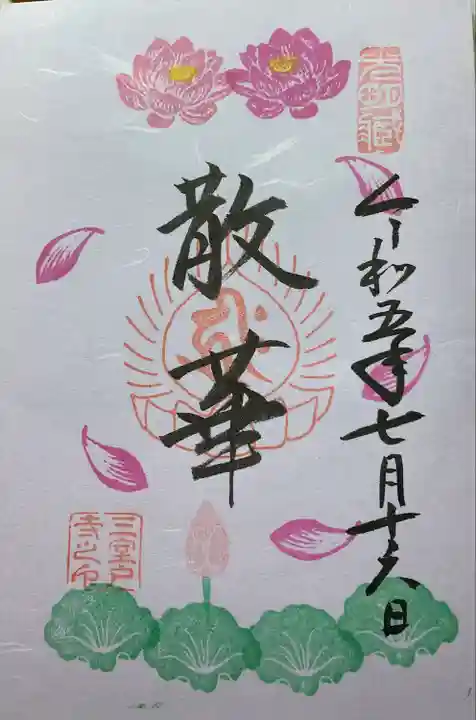 令和五年七月十六日
散華
三室戸
寺之印